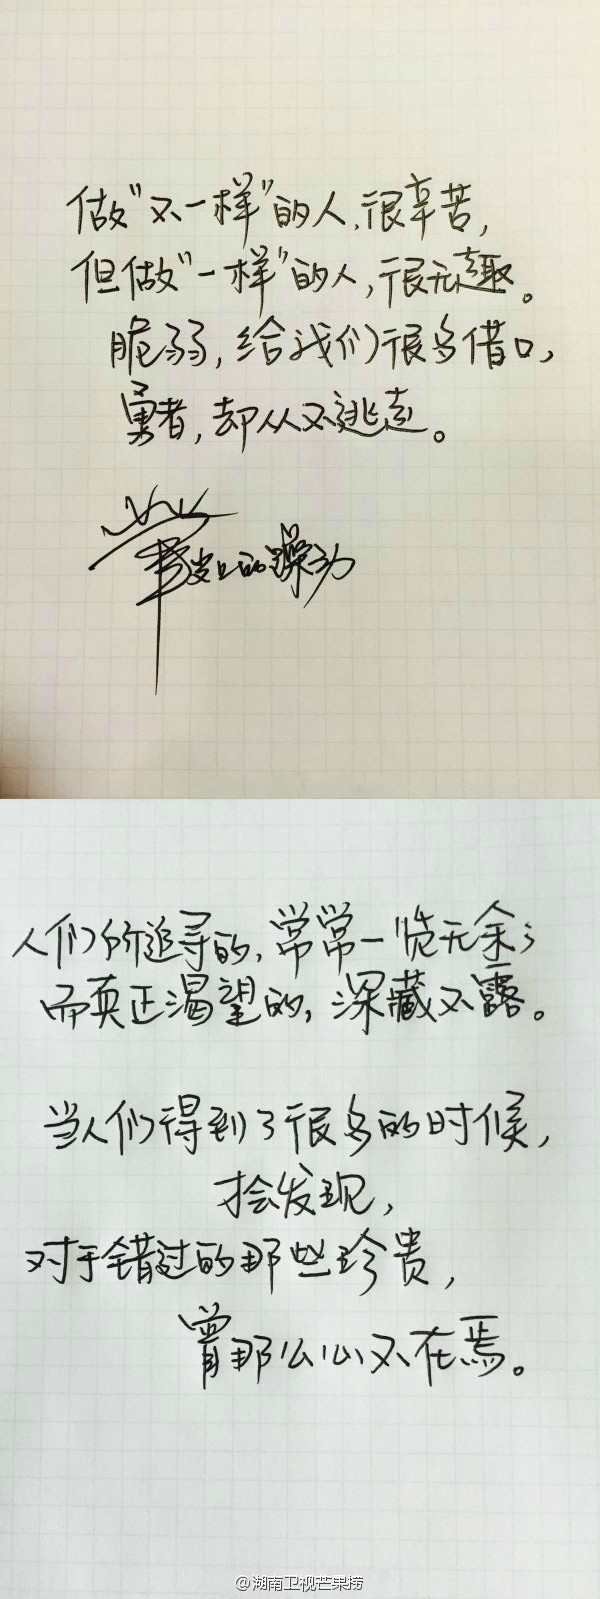 做“不一样”的人,很辛苦,
但做“一样”的人,很无趣。
脆弱,给我们很多借口,
勇者,却从不逃走。
笔尖上的躁动
人们所追寻的,常常一览无余;
而真正渴望的,深藏不露。
当人们得到了很多的时候,
才会发现,
对于错过的那些珍贵,
曾那么心不在焉。
@湖南卫视芒果捞